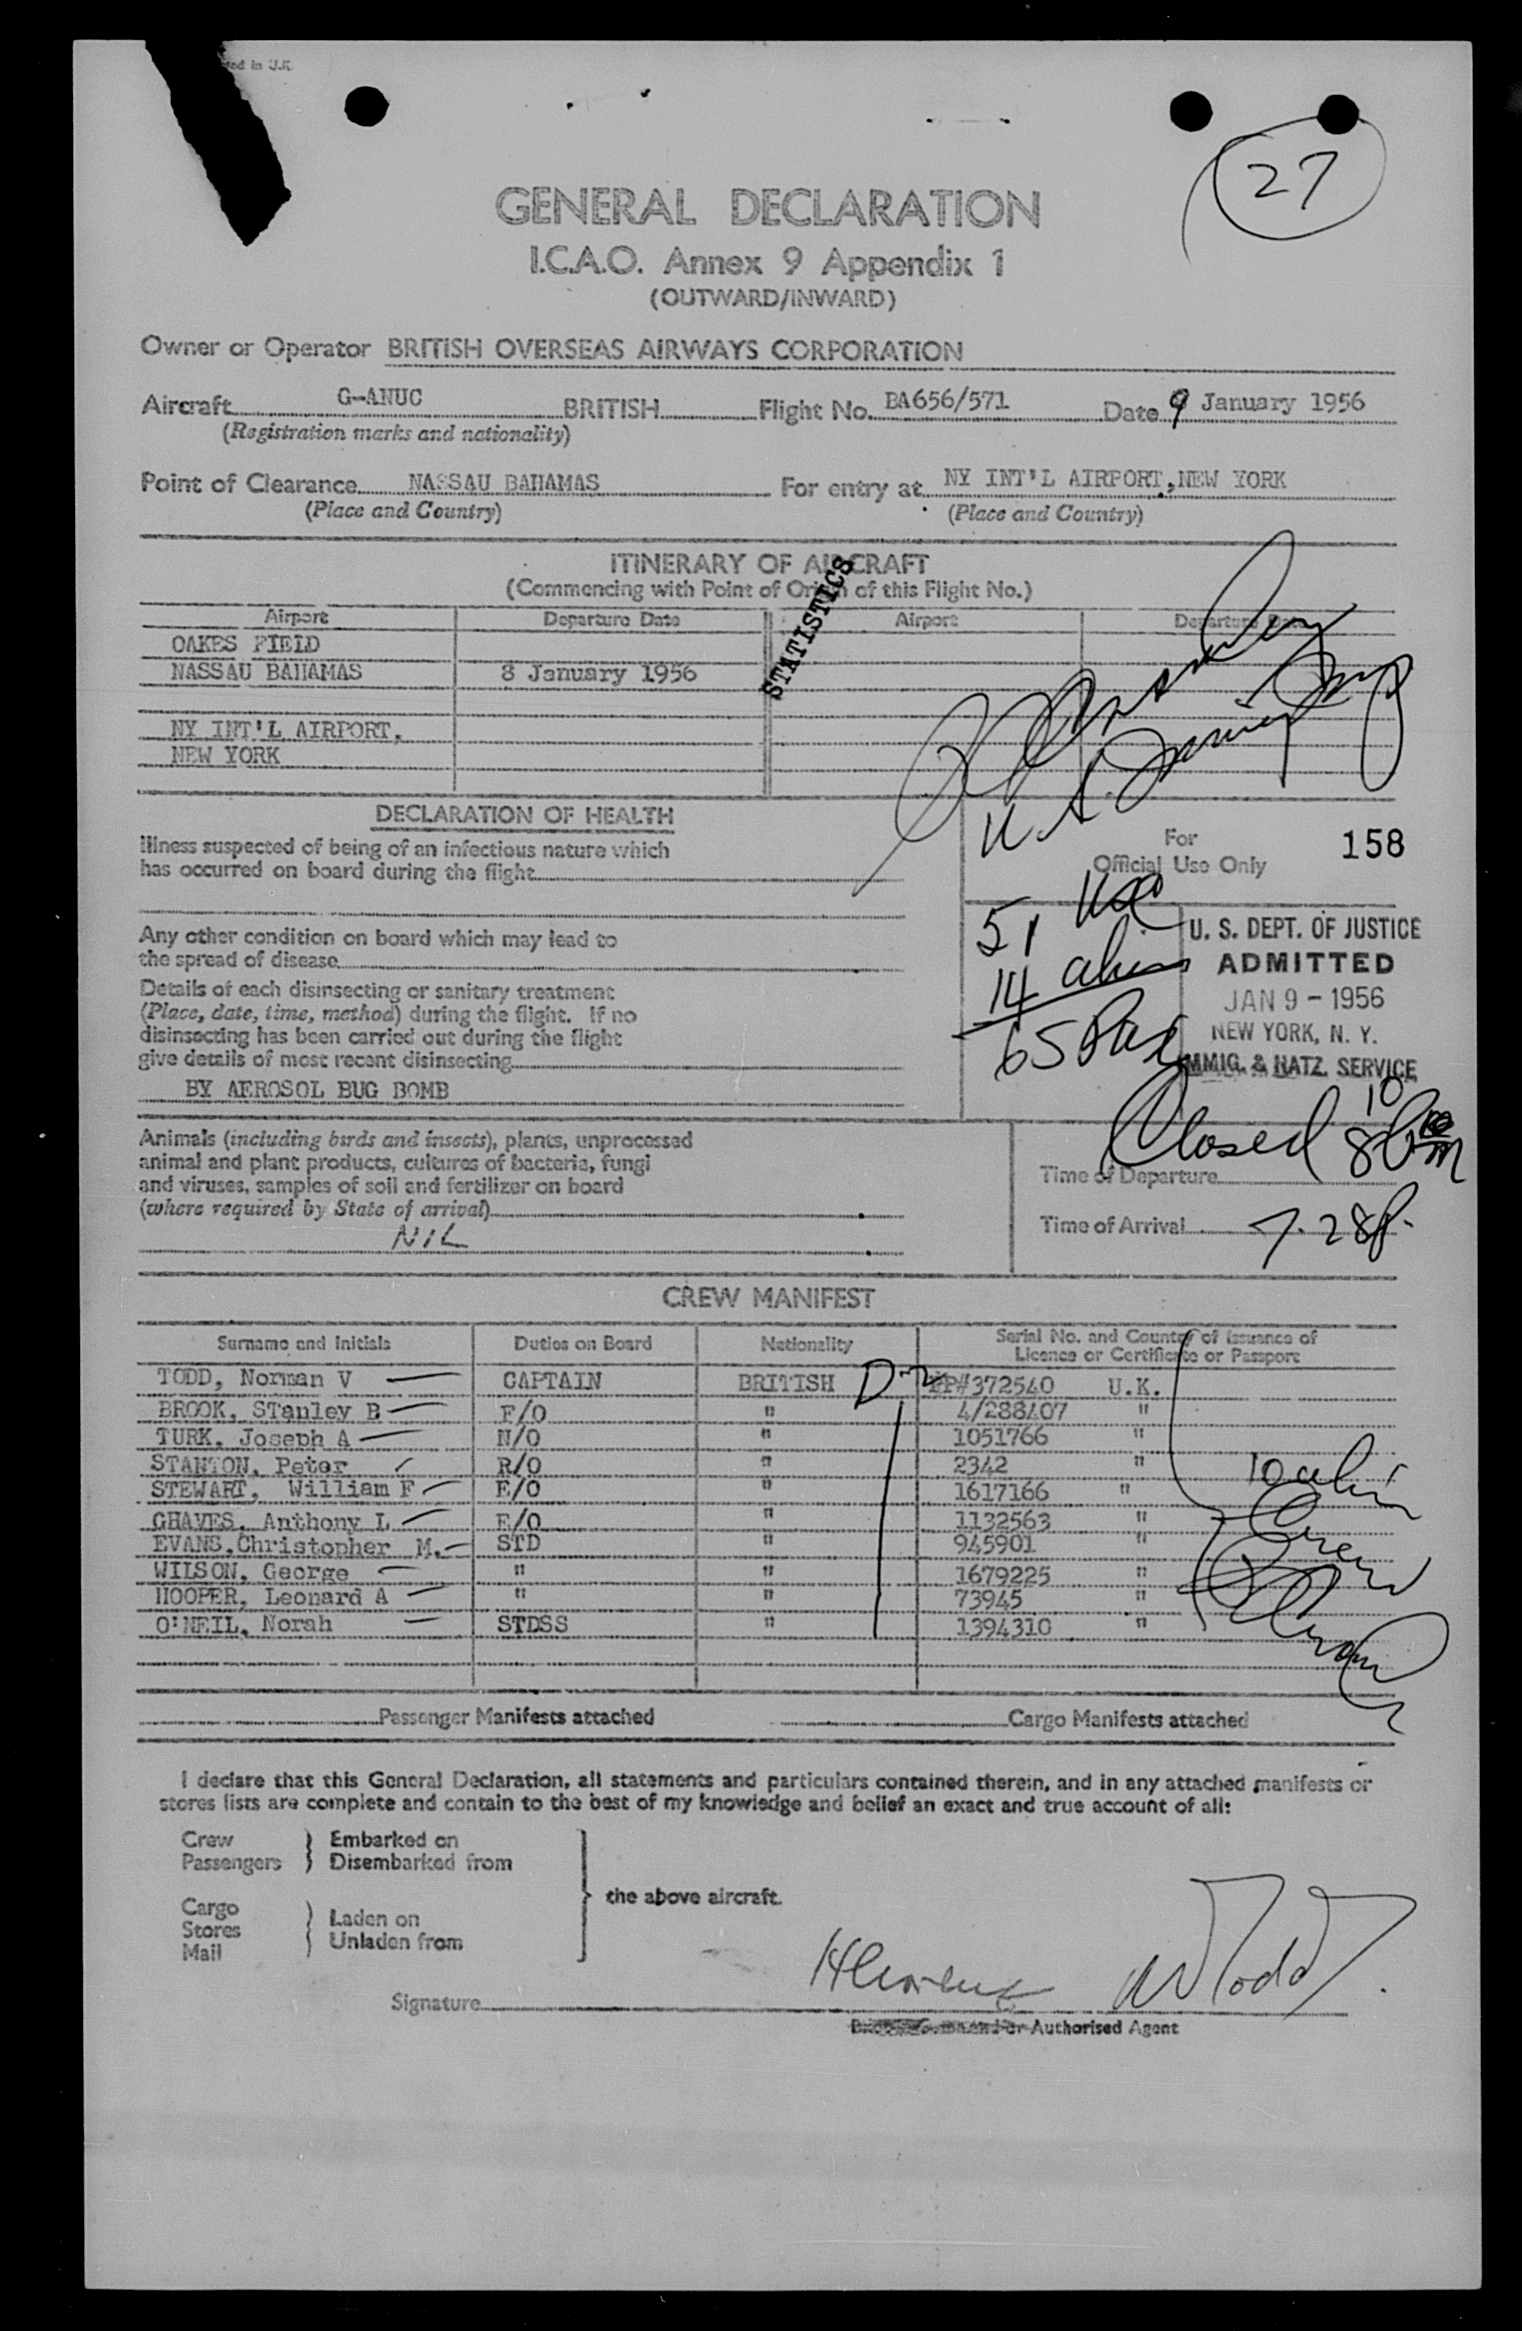 ted in U.K.
27
GENERAL DECLARATION
I.C.A.O. Annex 9 Appendix 1
(OUTWARD/INWARD)
Owner or Operator BRITISH OVERSEAS AIRWAYS CORPORATION
Aircraft G-ANUC BRITISH Flight No. BA656/571 Date 9 January 1956
(Registration marks and nationality)
Point of Clearance NASSAU BAHAMAS For entry at NY INT'L AIRPORT, NEW YORK
(Place and Country) (Place and Country)
ITINERARY OF AIRCRAFT
(Commencing with Point of Origin of this Flight No.)
STATISTICS
Airport Departure Date Airport Departure Date
OAKES FIELD
NASSAU BAHAMAS 8 January 1956
NY INT'L AIRPORT,
NEW YORK
DECLARATION OF HEALTH
Illness suspected of being of an infectious nature which
has occurred on board during the flight
For
Official Use Only
158
Any other condition on board which may lead to
the spread of disease
Details of each disinsecting or sanitary treatment
(Place, date, time, method) during the flight. If no
disinsecting has been carried out during the flight
give details of most recent disinsecting
BY AEROSOL BUG BOMB
51 USC
14 alien
65 Pax
U. S. DEPT. OF JUSTICE
ADMITTED
JAN 9 - 1956
NEW YORK, N. Y.
IMMIG. & NATZ. SERVICE
Animals (including birds and insects), plants, unprocessed
animal and plant products, cultures of bacteria, fungi
and viruses, samples of soil and fertilizer on board
(where required by State of arrival)
NIL
Closed 8
Time of Departure
Time of Arrival 7.28P.
CREW MANIFEST
Surname and Initials Duties on Board Nationality Serial No. and Country of Issuance of
Licence or Certificate or Passport
TODD, Norman V CAPTAIN BRITISH D-2 PP#372540 U.K.
BROOK, STanley B F/O " 4/288407 "
TURK, Joseph A N/O " 1051766 "
STANTON, Peter R/O " 2342 "
STEWART, William F E/O " 1617166 "
CHAVES, Anthony L E/O " 1132563 "
EVANS, Christopher M. STD " 945901 "
WILSON, George " " 1679225 "
HOOPER, Leonard A " " 73945 "
O'NEIL, Norah STDSS " 1394310 "
10 alien
Crew
Passenger Manifests attached Cargo Manifests attached
I declare that this General Declaration, all statements and particulars contained therein, and in any attached manifests or
stores lists are complete and contain to the best of my knowledge and belief an exact and true account of all:
Crew
Passengers
Embarked on
Disembarked from
Cargo
Stores
Mail
Laden on
Unladen from
the above aircraft.
Signature NVTodd
Authorised Agent